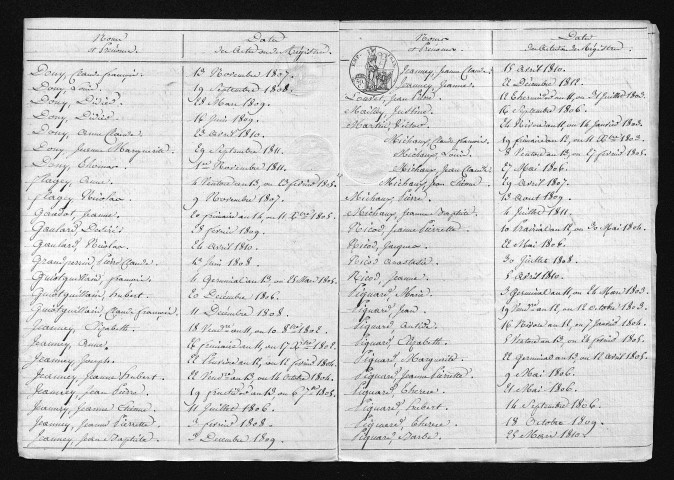 Noms et Prénoms. Date des Actes ou de Régistre.
Douy, Claude françois. 13 Novembre 1807.
Douy, Louis. 19 Septembre 1808.
Douy, Désiré. 28 Mars 1809.
Douy, Désiré. 12 Juin 1809.
Douy, Anne Claude. 23 aout 1810.
Douy, Jeanne Marguerite. 29 Septembre 1811.
Douy, Thomas. 1er Novembre 1811.
flagey, Anne. 4 Ventose an 13, ou 23 février 1805.
flagey, Nicolas. 9 Novembre 1807.
Gaudot, Jeanne. 20 frimaire an 14, ou 11 Xbre 1805.
Gaulard, Désiré. 28 février 1809.
Gaulard, Nicolas. 24 Avril 1810.
Grandperrin, Pierre Claude. Juin 1808.
Guiotguillain, françois. 4 Germinal an 13, ou 25 Mars 1805.
Guiotguillain, hubert. 20 Décembre 1806.
Guiotguillain, Claude françois. 11 Décembre 1808.
Jeanney, Elizabeth. 18 Vendre an 11, ou 10 8bre 1802.
Jeanney, Anne.
Jeanney, Joseph. 22 Pluviose an 12, ou 12 février 1804.
Jeanney, Jeanne hubert. 22 Vendre an 13, ou 14 Octobre 1804.
Jeanney, Jean Pierre. 19 fructidor an 13, ou 6 7bre 1805.
Jeanney, Jeanne Thérèse. 11 Juillet 1806.
Jeanney, Jeanne Pierrette. 3 février 1808.
Jeanney, Jeane Baptiste. 3 Décembre 1809.
Noms et Prénoms. Date des Actes ou de Régistre.
Jeanney, Jeanne Claude. 15 Avril 1810.
Jeanney, Jeanne. 22 Décembre 1812.
Loutet, Jean 12 thermidor an 11, ou 31 Juillet 1803.
Mailly, Justine. 16 Septembre 1806.
Martin, Victor. 24 Nivose an 11, ou 14 Janvier 1803.
Michaux, Claude françois. 19 frimaire an 12, ou 11 Xbre 1803.
Michaux, Louis. 8 Ventose an 13, ou 27 février 1805.
Michaux, Jean Claude. 27 Mai 1806.
Michaux, Jean Etienne. 29 Avril 1807.
Michaux, Pierre. 13 Aout 1809.
Michaux, Jeanne Baptiste. 4 Juillet 1811.
Nicod, Jeanne Pierrette. 10 Prairial an 12, ou 30 Mai 1804.
Nicod, Jacques. 22 Mai 1806.
Nicod, Anastasie. 30 Juillet 1808.
Nicod, Jeanne. 8 Avril 1810.
Piquard, Marie. 3 Germinal an 11, ou 24 Mars 1803.
Piquard, Jean. 19 Vendre an 12, ou 12 octobre 1803.
Piquard, Antide. 16 Nivose an 12, ou 7 Janvier 1804.
Piquard, Elizabeth. 5 Ventose an 13, ou 24 février 1805.
Piquard, Marguerite. 22 Germinal an 13, ou 12 Avril 1805.
Piquard, Jeanne Pierrette. 9 Mai 1806.
Piquard, Thérèse. 21 Mai 1806.
Piquard, hubert. 14 Septembre 1806.
Piquard, Thérèse. 18 Octobre 1809.
Piquard, Barbe. 25 Mars 1810.